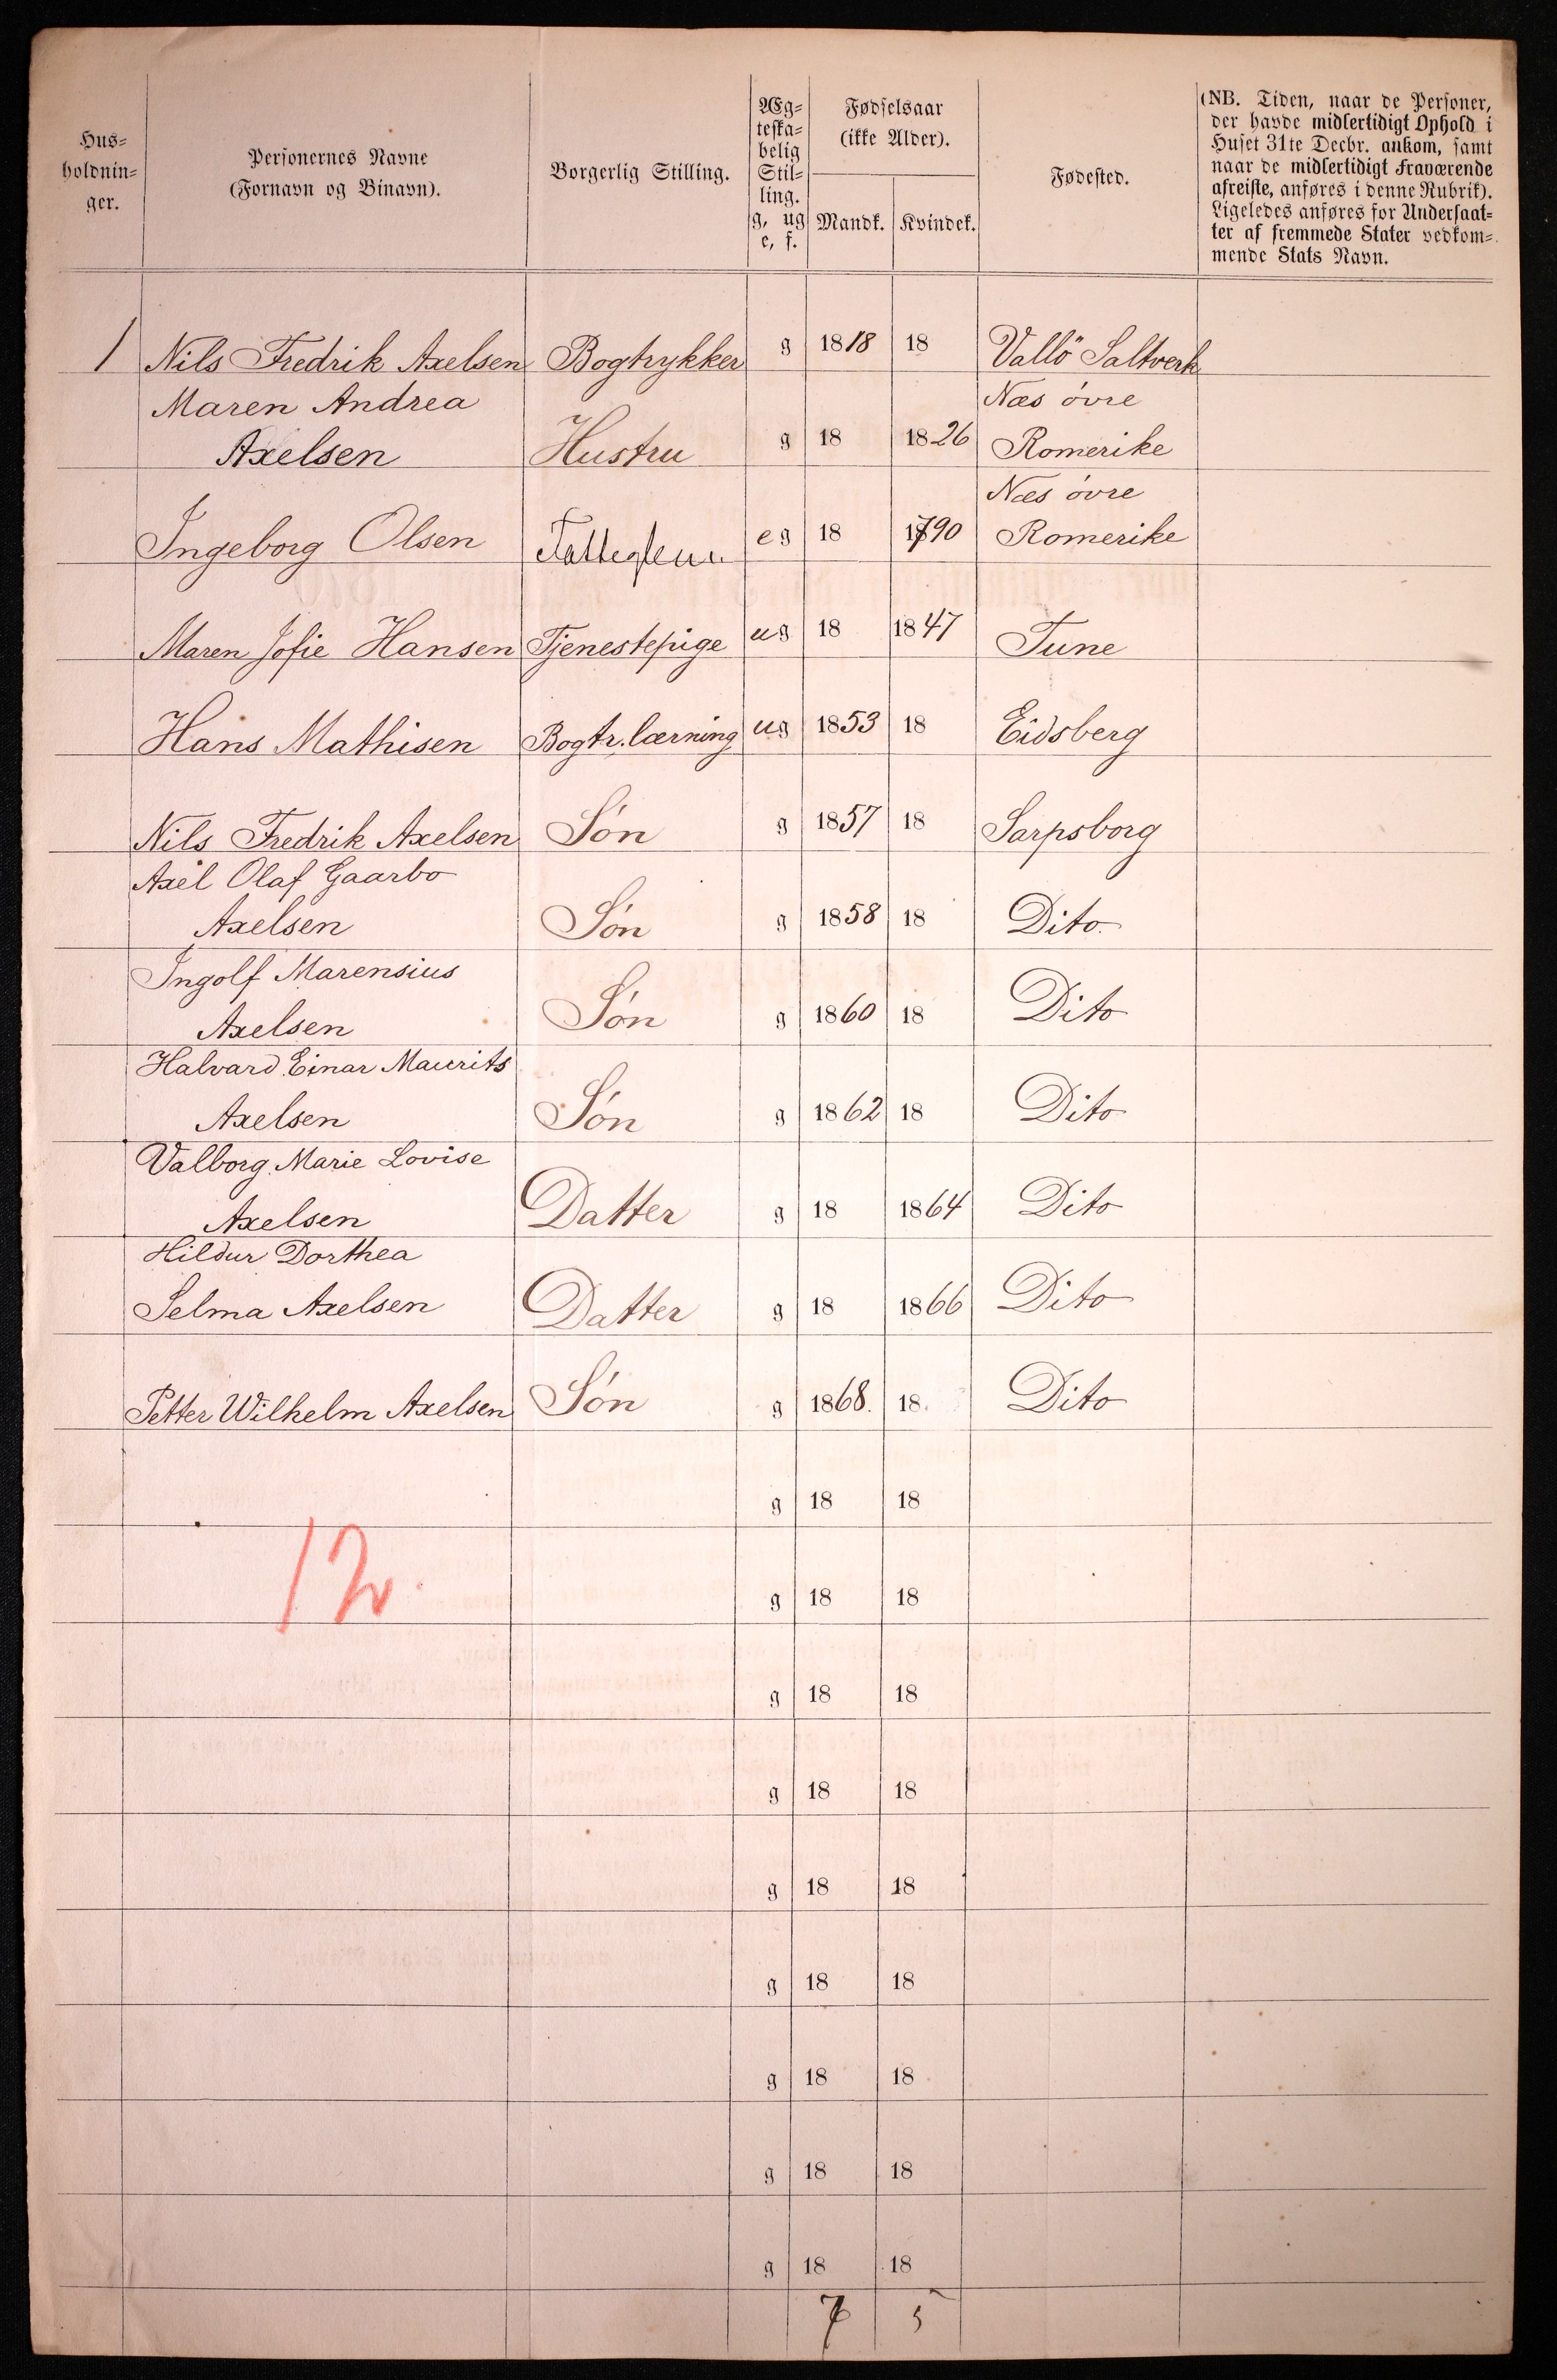 Hus=
holdnin=
ger.
Personernes Navne
(Fornavn og Binavn).
Borgerlig Stilling.
Æg=
teska=
belig
Stil=
ling.
g, ug
e, f.
Fødselsaar
(ikke Alder).
Mandk. Kvindek.
Fødested.
(NB. Tiden, naar de Personer,
der havde midlertidigt Ophold i
Huset 31te Decbr. ankom, samt
naar de midlertidigt fraværende
afreiste, anføres i denne Rubrik).
Ligeledes anføres for Undersaat=
ter af fremmede Stater vedkom=
mende Stats Navn.
1 Nils Fredrik Axelsen Bogtrykker g 1818 18 Vallö Saltverk
Maren Andrea Næs övre
Axelsen Hustru g 18 1826 Romerike
Næs övre
Ingeborg Olsen eg 18 1790 Romerike
Maren Jofie Hansen Tjenestepige ug 18 1847 Tune
Hans Mathisen Bogtr.lærning ug 1853 18 Eidsberg
Nils Fredrik Axelsen Són g 1857 18 Sarpsborg
Axel Olaf Gaarbo
Axelsen Són g 1858 18 Dito
Ingolf Marensius
Axelsen Són g 1860 18 Dito
Halvard Einar Maurits
Axelsen Són g 1862 18 Dito
Valborg Marie Lovise
Axelsen Datter g 18 1864 Dito
Hildur Dorthea
Selma Axelsen Datter g 18 1866 Dito
Petter Wilhelm Axelsen Són g 1868. 18 Dito
g 18 18
12
g 18 18
g 18 18
g 18 18
g 18 18
g 18 18
g 18 18
g 18 18
g 18 18
7 5